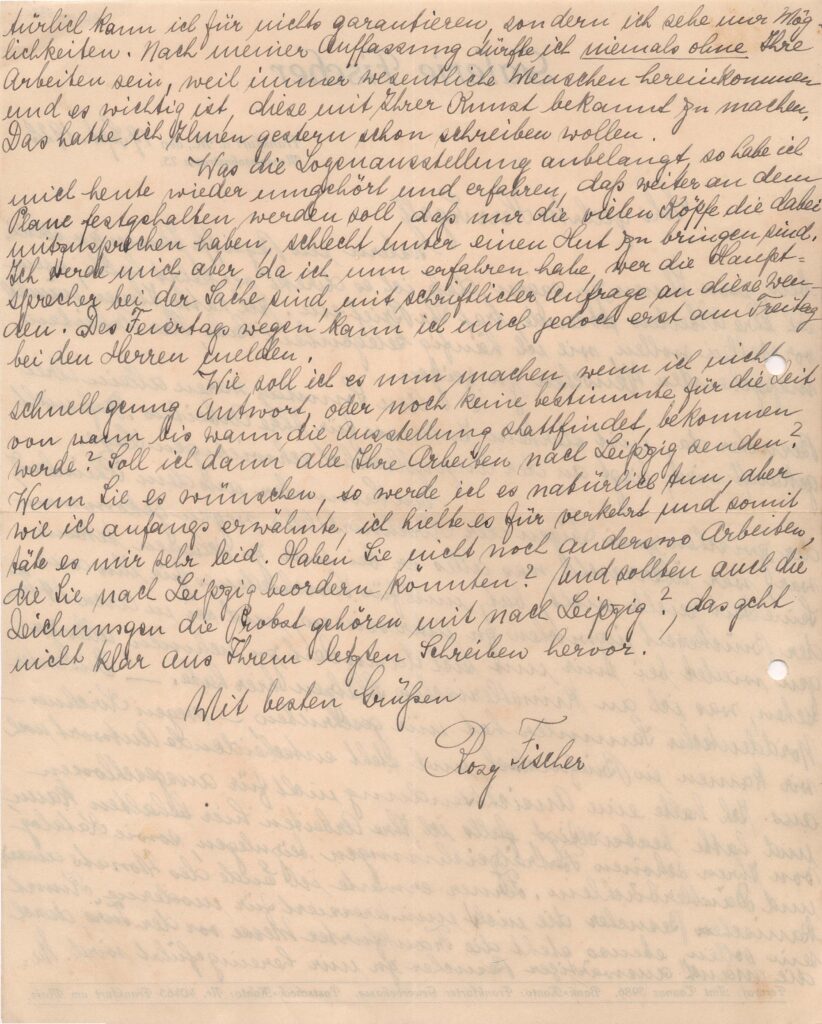 türlich kann ich für nichts garantieren, sondern ich sehe nur Mög-
lichkeiten. Nach meiner Auffassung dürfte ich niemals ohne Ihre
Arbeiten sein, weil immer wesentliche Menschen hereinkommen
und es wichtig ist, diese mit Ihrer Kunst bekannt zu machen.
Das hatte ich Ihnen gestern schon schreiben wollen.
Was die Logenausstellung anbelangt, so habe ich
mich heute wieder umgehört und erfahren, daß weiter an dem
Plane festgehalten werden soll, daß nur die vielen Köpfe die dabei
mitzusprechen haben, schlecht unter einen Hut zu bringen sind.
Ich werde mich aber, da ich nun erfahren habe, wer die Haupt=
sprecher bei der Sache sind, mit schriftlicher Anfrage an diese wen-
den. Des Feiertags wegen kann ich mich jedoch erst am Freitag
bei den Herren melden.
Wie soll ich es nun machen, wenn ich nicht
schnell genug Antwort, oder noch keine bestimmte, für die Zeit
von wann bis wann die Ausstellung stattfindet, bekommen
werde? Soll ich dann alle Ihre Arbeiten nach Leipzig senden?
Wenn Sie es wünschen, so werde ich es natürlich tun, aber
wie ich anfangs erwähnte, ich hielte es für verkehrt und somit
täte es mir sehr leid. Haben Sie nicht noch anderswo Arbeiten,
die Sie nach Leipzig beordern könnten? Und sollten auch die
Zeichnungen die Probst gehören mit nach Leipzig?, das geht
nicht klar aus Ihrem letzten Schreiben hervor.
Mit besten Grüßen
Rosy Fischer